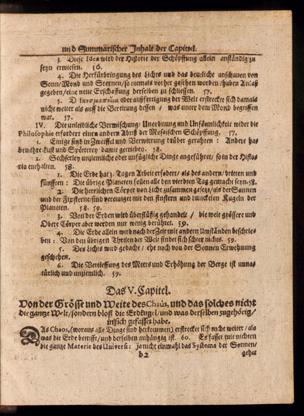 und Summarischer Inhalt der Capitel.
3. Diese Idea wird der Historie der Schöpffung allein anständig zu
seyn erwiesen. 56.
4. Die Herfürbringung des Lichts und das deutliche anschauen von
Sonne/Mond und Sternen/so vormals vorher gesehen worden/haben Anlaß
gegeben/eine neue Erschaffung derselben zu schliessen. 57.
5. Die oder auffertigung der Welt erstrecket sich damals
nicht weiter als auff die Benennung dessen / was unter dem Mond begriffen
war. 57.
IV. Der unleidliche Vermischung/ Unordnung und Unsämlichkeit wider die
Philosophie erfodert einen andern Abriß der Mosaischen Schöpffung. 57.
1. Einige sind in Zweiffel und Verwirrung drüber gerahten: Andere haß
und Spötterey damit getrieben. 58.
2. Sechserley unziemliche oder unfügliche Dinge angeführet/ so in der Histo-
ria enthalten. 58.
3. Die Erde hat 3. Tagen Arbeit erfodert/ als des andern/ dritten und
fünfften: Die übrige Planeten sollen des vierdten Tag gemacht seyn. 58.
2. Die herrlichen Cörper von Licht zusammen gesetzt/ als der Sonnen
und der Fixsternen sind verzogen mit den finstern und dunckeln Kugeln der
Planeten. 58. 59.
3. Von der Erden wird überflüßig gehandelt/ die weit grössere und
Ober Cörper aber werden nur wenig berühret. 59.
4. Die Erde allein wird nach der Zeit mit andern Umständen beschrie-
ben: Von den übrigen Theilen der Welt findet sich schier nichts. 59.
5. Des Lichts wird gedacht / ehe noch von der Sonnen Erwehnung
geschehen. 59.
6. Die Vertieffung des Meers und Erhöhung der Berge ist unna-
türlich und unziemlich. 59.
Das V. Capitel.
Von der Grösse und Weite des Chaus, und das solches nicht
die gantze Welt/ sondern bloß die Erdkugel/ und was derselben zugehörig/
in sich gefasset habe.
Das Chaos, (woraus alle Dinge sind herkommen) erstrecket sich nicht weiter/ als
was die Erde betrifft/ und derselben anhängig ist. 60. Es fasset wie nichten
die gantze Materie des Universi: ja nicht einmahl das Systema der Sonnen/
b 2
gehet